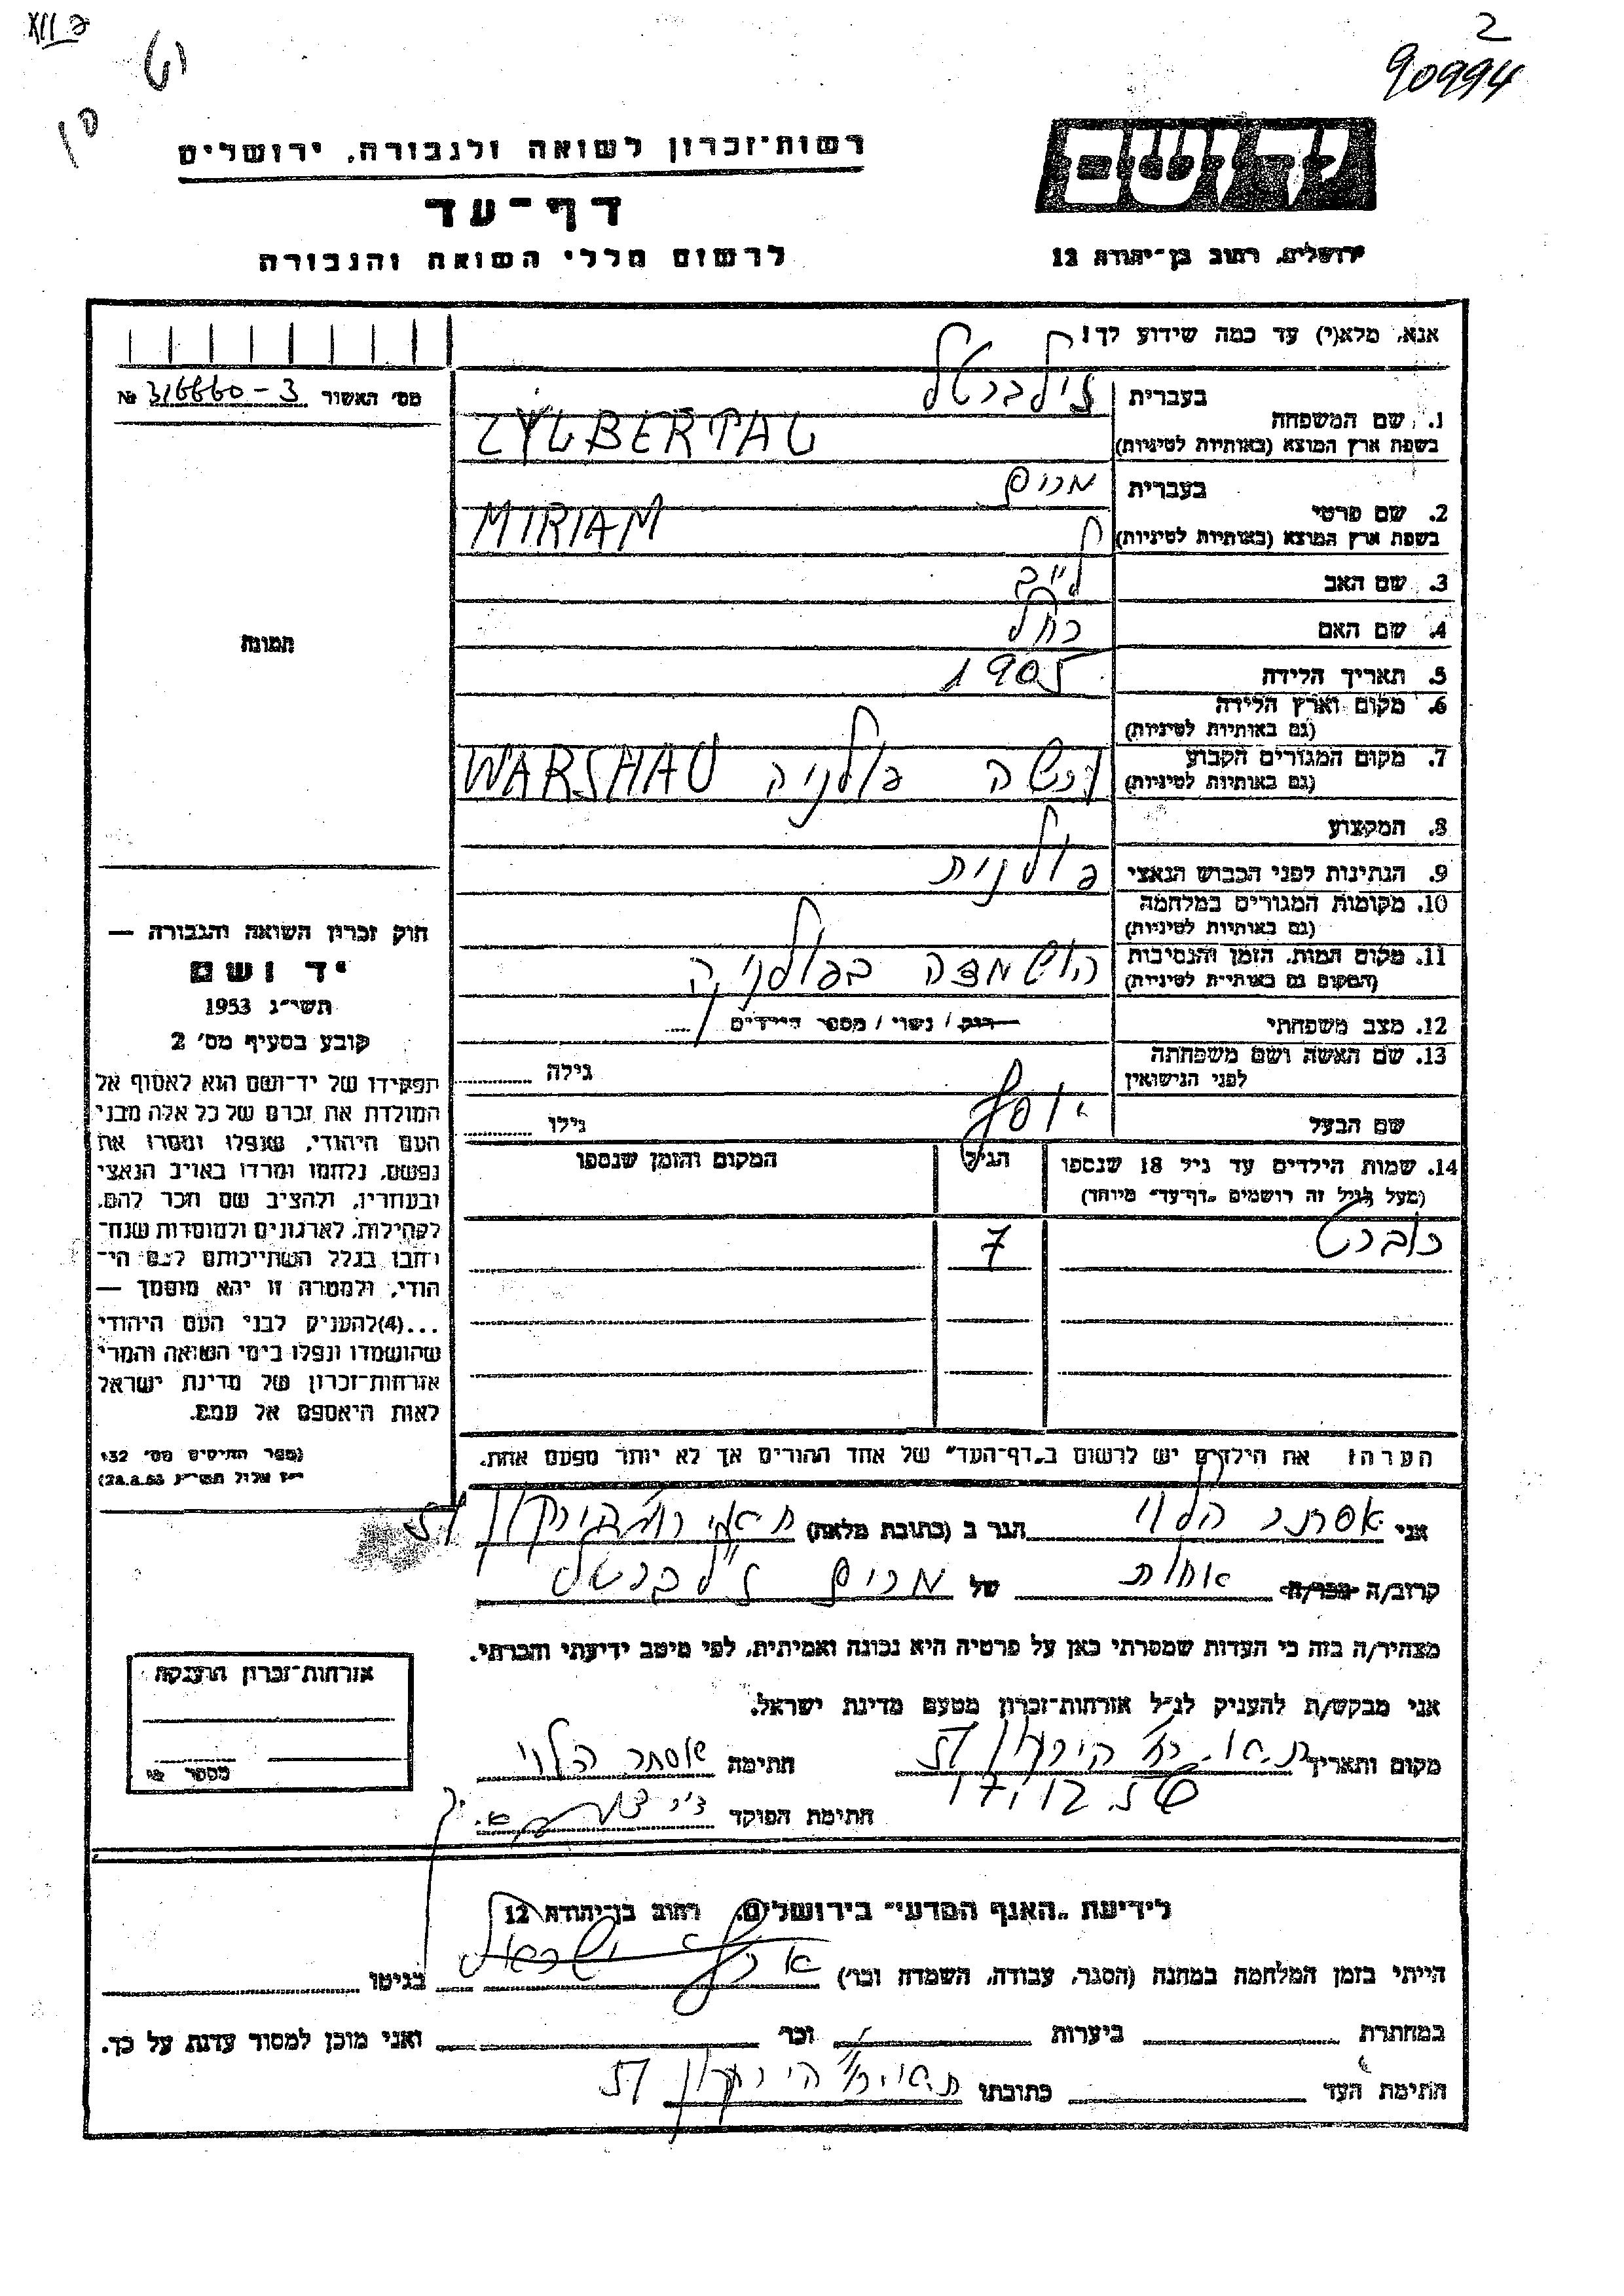 2
90994
רשות־זכרון לשואה ולגבורה, ירושלים
יד ושם
דף־עד
לרשום חללי השואה והגבורה
ירושלים, רחוב בן־יהודה 12
אנא, מלא(י) עד כמה שידוע לך!
מס' האשור № 316660-3
1. שם המשפחה
בעברית זילברטל
בשפת ארץ המוצא (באותיות לטיניות) ZYLBERTAL
2. שם פרטי
בעברית מרים
בשפת ארץ המוצא (באותיות לטיניות) MIRIAM
3. שם האב לייב
4. שם האם רחל
תמונה
5. תאריך הלידה 1905
6. מקום וארץ הלידה
(גם באותיות לטיניות)
7. מקום המגורים הקבוע
(גם באותיות לטיניות) ורשה פולניה WARSHAU
8. המקצוע
9. הנתינות לפני הכבוש הנאצי פולנית
10. מקומות המגורים במלחמה
(גם באותיות לטיניות)
11. מקום המות, הזמן והנסיבות
(המקום גם באותיות לטיניות) הושמדה בפולניה
12. מצב משפחתי רווק / נשוי / מספר הילדים
13. שם האשה ושם משפחתה
לפני הנישואין גילה
שם הבעל יוסף גילו
14. שמות הילדים עד גיל 18 שנספו הגיל המקום והזמן שנספו
(מעל לגיל זה רושמים „דף־עד" מיוחד)
רוברט 7
הערה: את הילדים יש לרשום ב„דף־העד" של אחד ההורים אך לא יותר מפעם אחת.
חוק זכרון השואה והגבורה —
יד ושם
תשי״ג 1953
קובע בסעיף מס' 2
תפקידו של יד־ושם הוא לאסוף אל
המולדת את זכרם של כל אלה מבני
העם היהודי, שנפלו ומסרו את
נפשם, נלחמו ומרדו באויב הנאצי
ובעוזריו, ולהציב שם וזכר להם,
לקהילות, לארגונים ולמוסדות שנח־
רבו בגלל השתייכותם לעם הי־
הודי, ולמטרה זו יהא מוסמך —
...(4)להעניק לבני העם היהודי
שהושמדו ונפלו בימי השואה והמרי
אזרחות־זכרון של מדינת ישראל
לאות היאספם אל עמם.
(ספר החוקים מס' 132
י״ז אלול תשי״ג 28.8.53)
אני אסתר הלוי הגר ב (כתובת מלאה) ת״א רח' הירקון
קרוב/ה מכר/ה אחות של מרים זילברטל
מצהיר/ה בזה כי העדות שמסרתי כאן על פרטיה היא נכונה ואמיתית, לפי מיטב ידיעתי והכרתי.
אני מבקש/ת להעניק לנ״ל אזרחות־זכרון מטעם מדינת ישראל.
מקום ותאריך ת.א. רח' הירקון
חתימה אסתר הלוי
חתימת הפוקד
אזרחות־זכרון הוענקה
מספר
לידיעת „האגף המדעי" בירושלים, רחוב בן־יהודה 12
הייתי בזמן המלחמה במחנה (הסגר, עבודה, השמדה וכו') ארץ ישראל בגיטו
במחתרת ביערות וכו' ואני מוכן למסור עדות על כך.
חתימת העד כתובתו ת.א. רח' הירקון